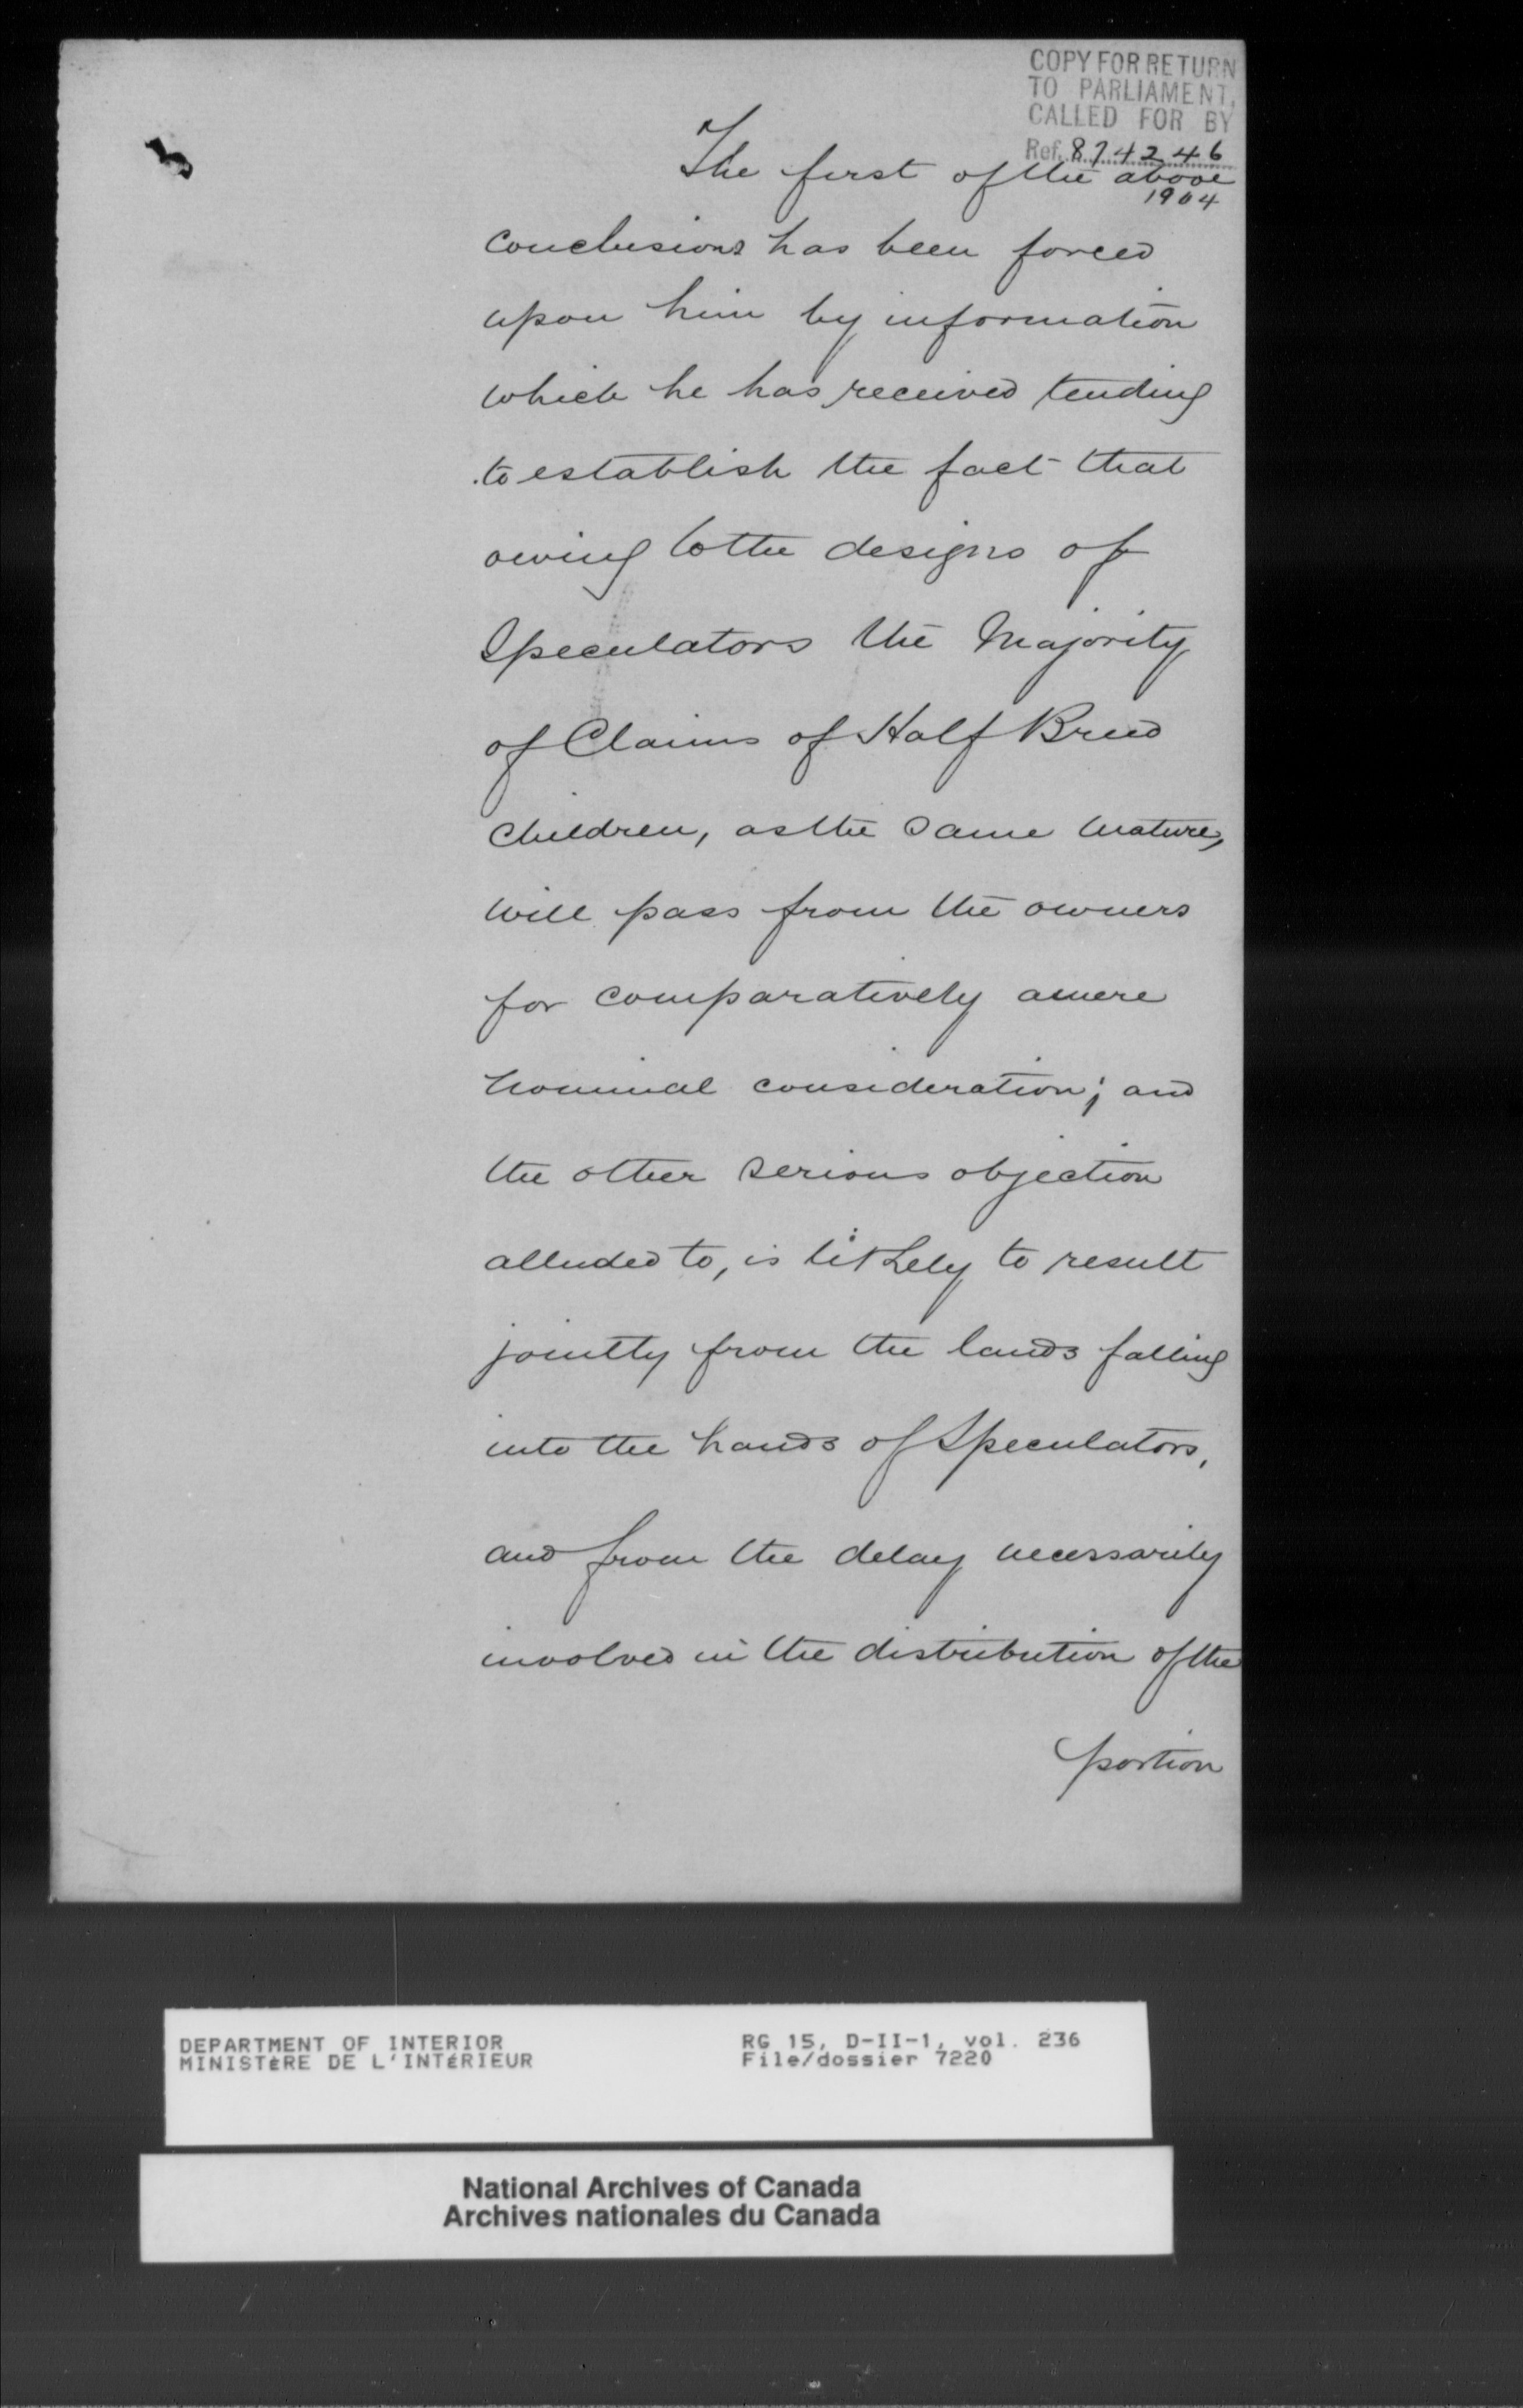 COPY FOR RETURN
TO PARLIAMENT,
CALLED FOR BY
Ref. 874246
1904
The first of the above
conclusions has been forced
upon him by information
which he has received tending
to establish the fact that
owing to the designs of
Speculators the Majority
of Claims of Half Breed
Children, as the same mature,
will pass from the owners
for comparatively a mere
nominal consideration; and
the other serious objection
alluded to, is likely to result
jointly from the lands falling
into the hands of Speculators,
and from the delay necessarily
involved in the distribution of the
portion
DEPARTMENT OF INTERIOR
MINISTÈRE DE L'INTÉRIEUR
RG 15, D-II-1, vol. 236
File/dossier 7220
National Archives of Canada
Archives nationales du Canada